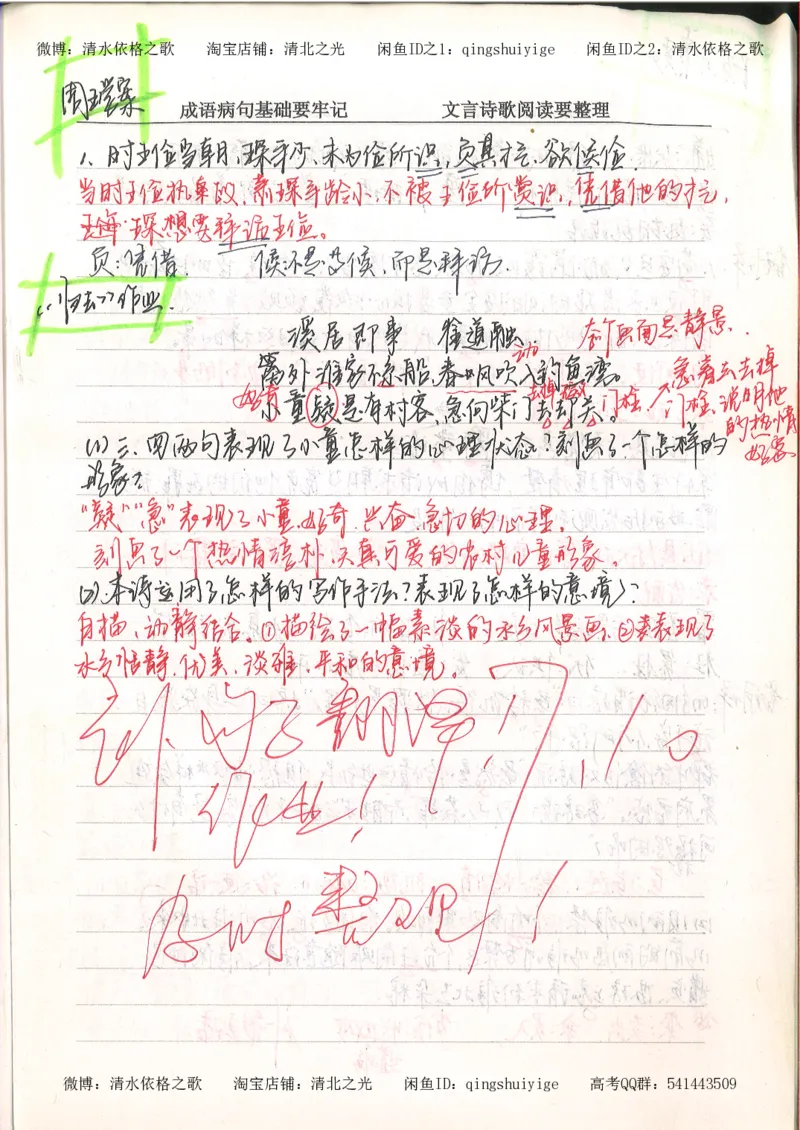 微博：清水依格之歌 淘宝店铺：清北之光 闲鱼ID之1：qingshuiyige 闲鱼ID之2：清水依格之歌
成语病句基础要牢记 文言诗歌阅读要整理
1、时王俭当朝，琛年少，未为俭所识，负其才，欲候俭
当时王俭执掌政，萧琛年龄小，不被王俭所赏识，凭借他的才，
琛想要拜访王俭。
负：凭借 候不是等候，而是拜访.
作业.
溪居即事 崔道融 个画面是静景.
篱外谁家不系船，春风吹入钓鱼湾。
动
好奇
小童疑是有村客，急向柴门去却关。
去掉
门栓.
急着去去掉
门栓，说明他
的热情
好客
(1)三、四两句表现了小童怎样的心理状态？刻画了一个怎样的
形象？
“疑”“急”表现了小童好奇、兴奋、急切的心理。
刻画了一个热情淳朴、天真可爱的农村儿童形象。
(2)本诗运用了怎样的写作手法？表现了怎样的意境？
白描，动静结合。①描绘了一幅素淡的水乡风景画，②表现了
水乡恬静、优美、淡雅、平和的意境。
翻译！7.10
作业！
及时整理！
微博：清水依格之歌 淘宝店铺：清北之光 闲鱼ID：qingshuiyige 高考QQ群：541443509